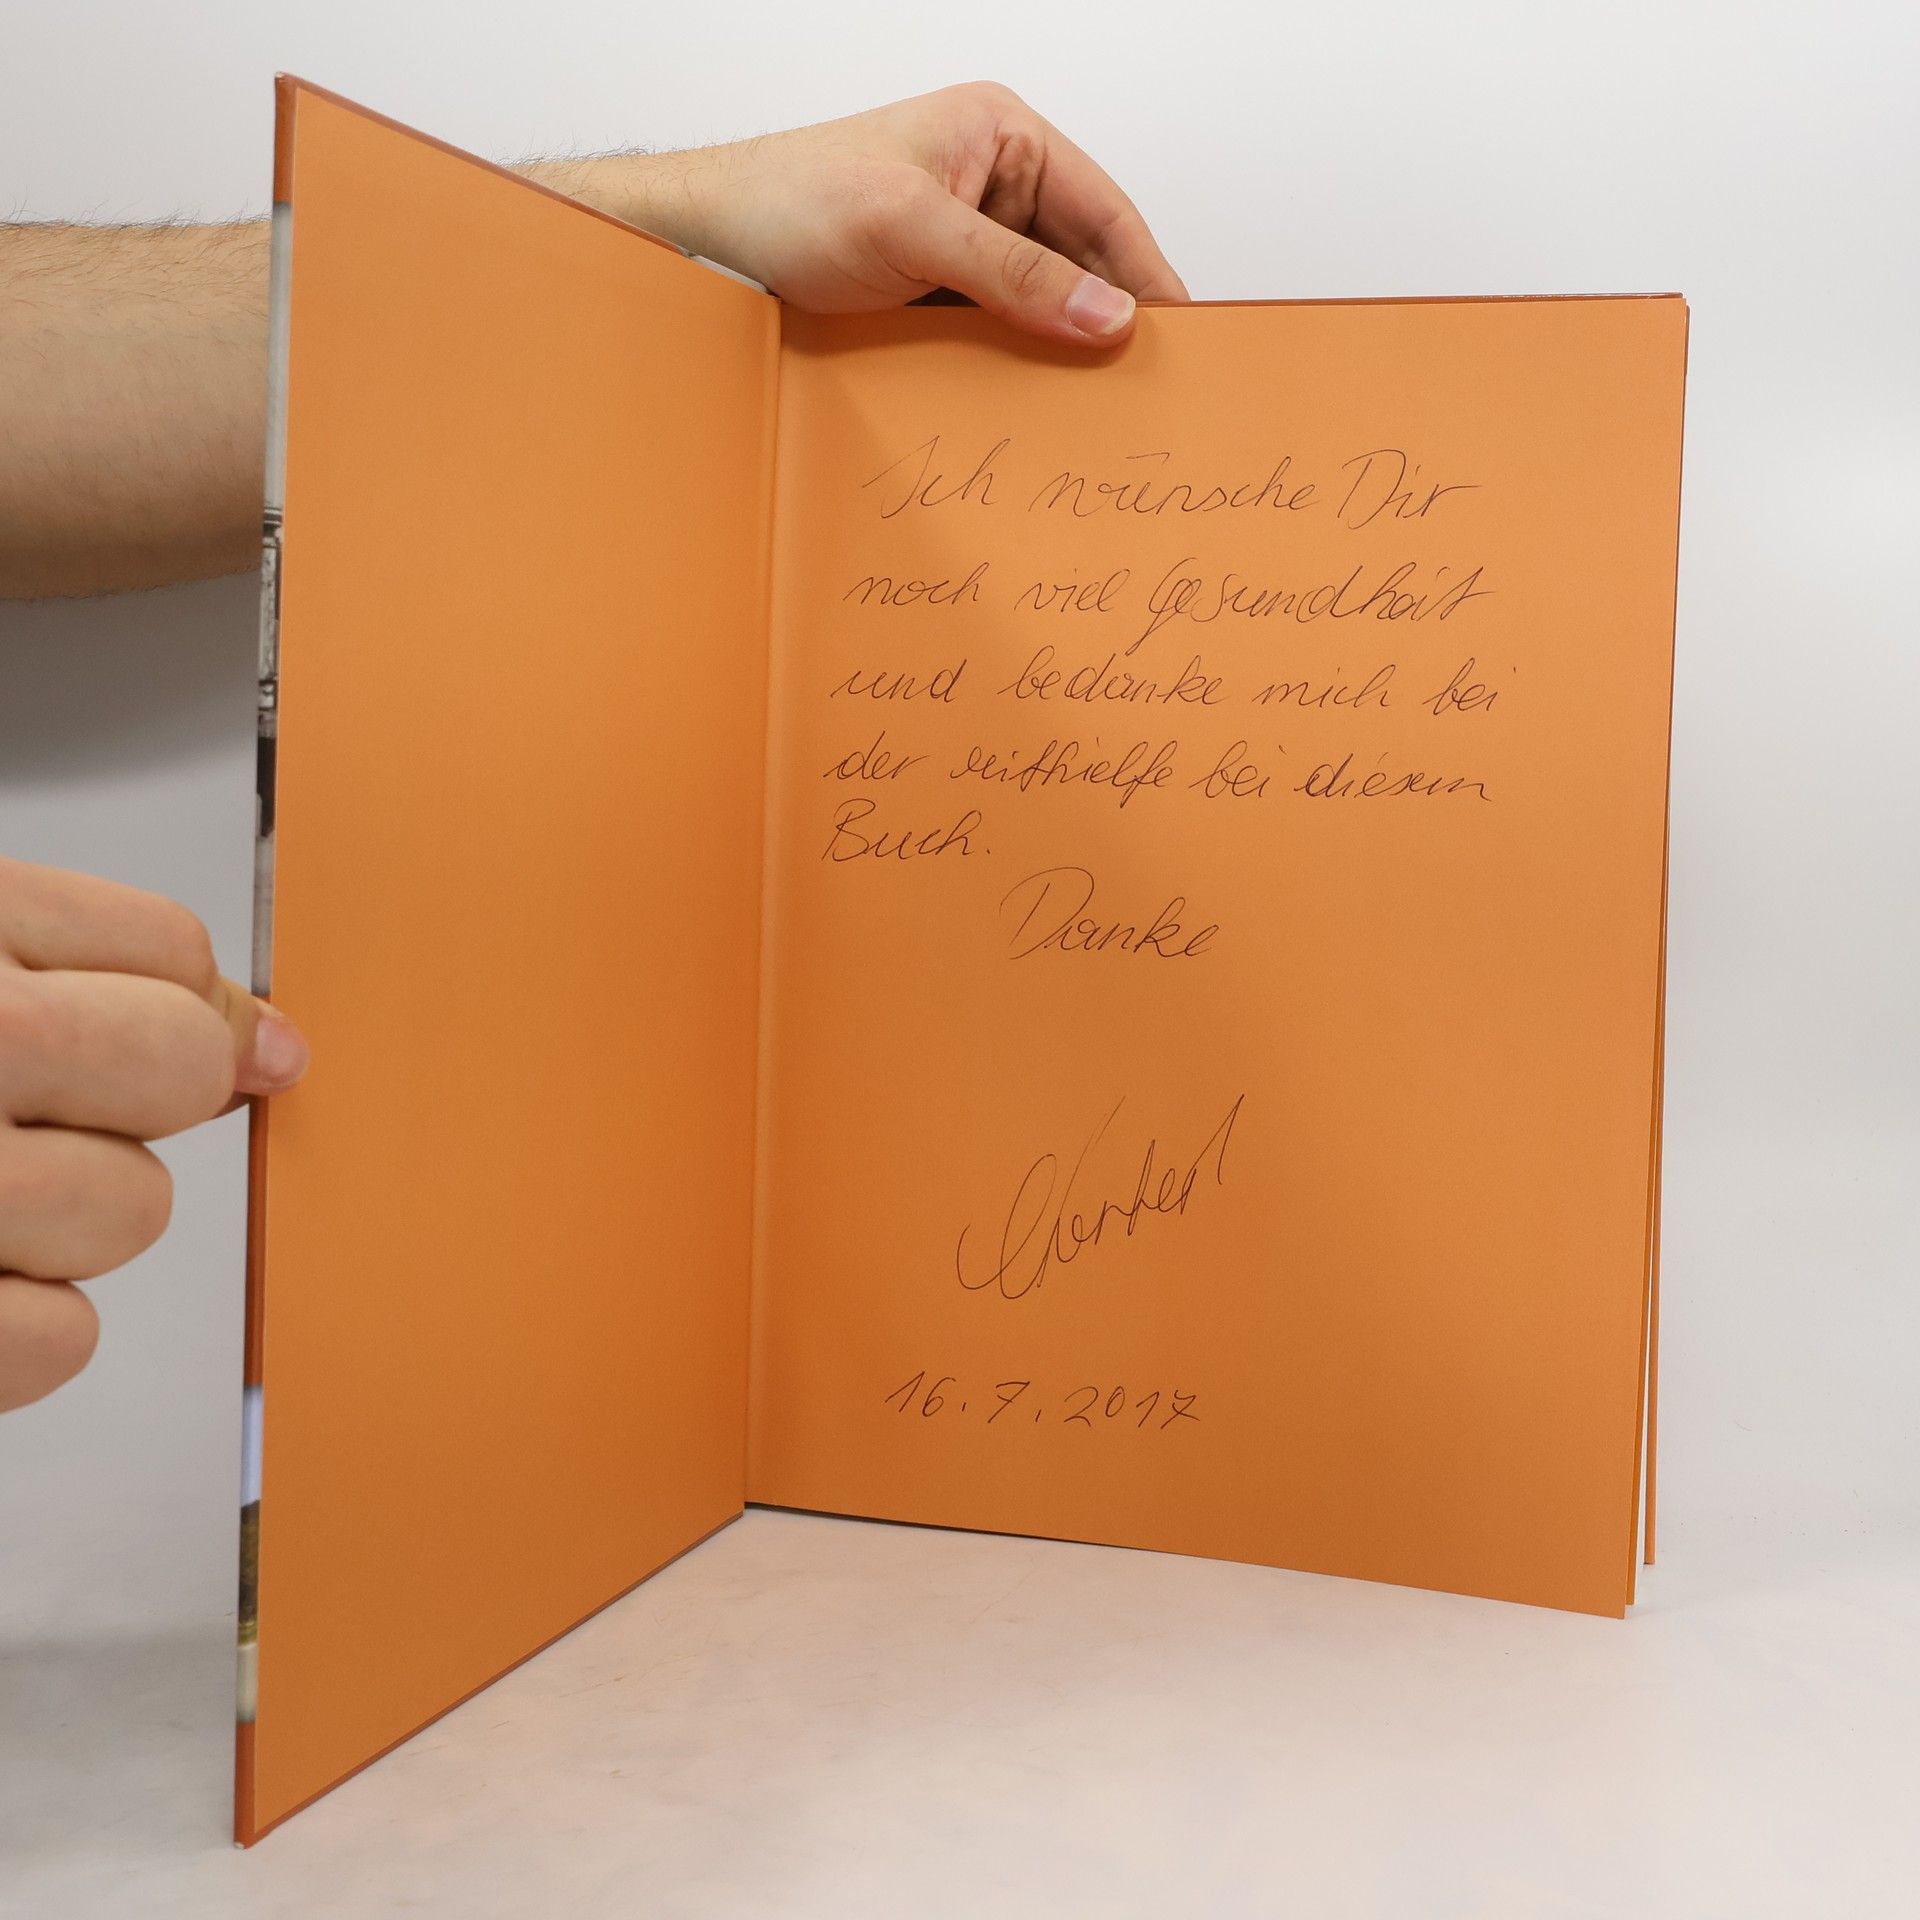 Ich wünsche Dir
noch viel Gesundheit
und bedanke mich bei
der mithielfe bei diesem
Buch.
Danke
16.7.2017